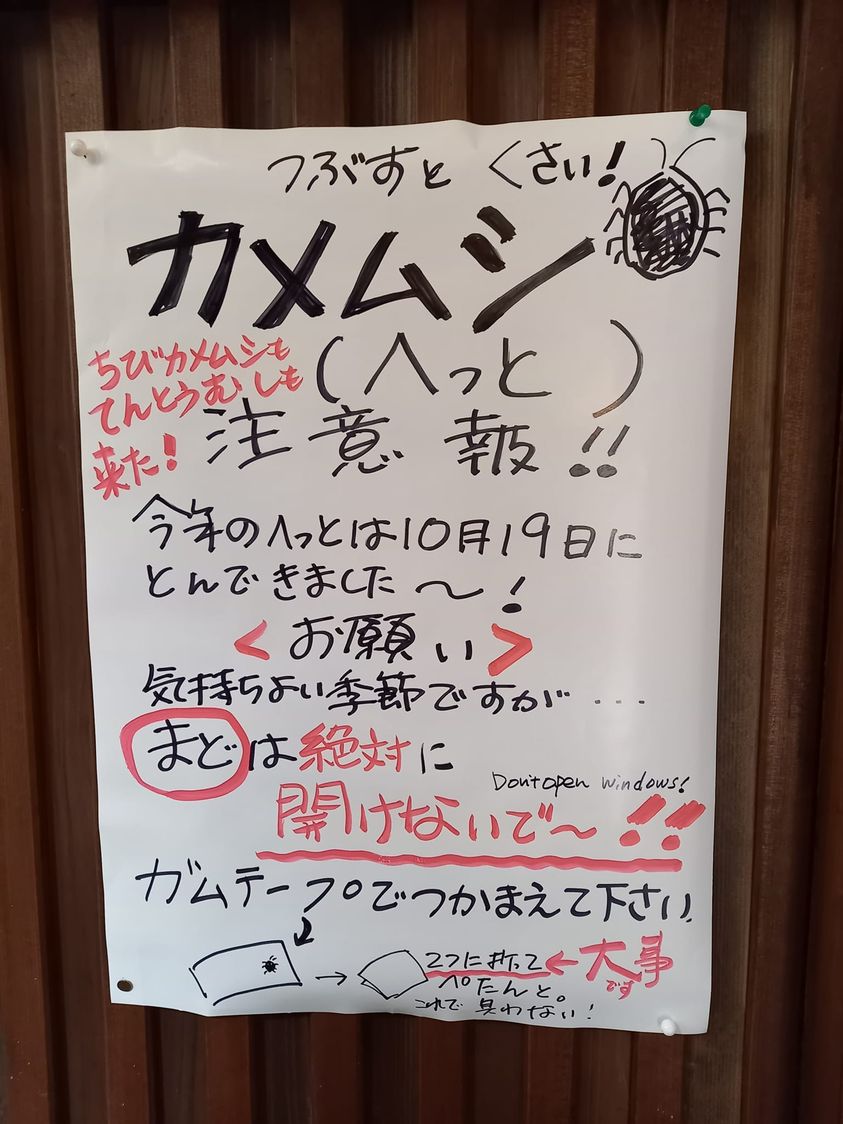 つぶすと くさい!
カメムシ
(へっと)
ちびカメムシも
てんとうむしも
来た!
注意報!!
今年のへっとは10月19日に
とんできました〜!
<お願い>
気持ちよい季節ですが…
まどは絶対に
Don't open windows!
開けないで〜!!
ガムテープでつかまえて下さい。
2つに折って←大事です
ペたんと。
これで臭わない!